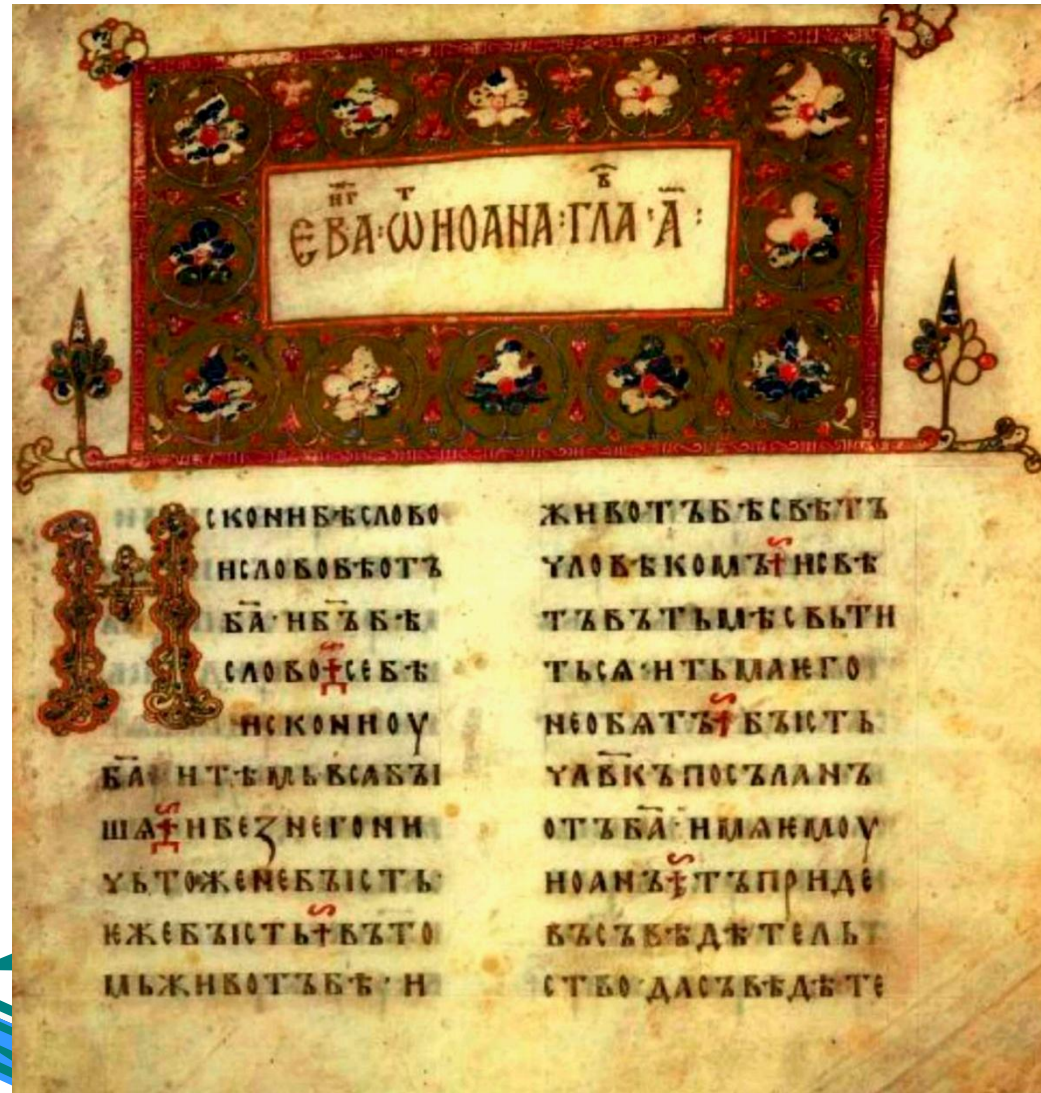 ЕВАⷩ҇ⷢ҇·Ѡⷮ НОАНА:ГЛАⷡ҇·А҃:
НСКОННБѢСЛОВО
НСЛОВОБѢОТЪ
БА҃·НБЪ҃БѢ
СЛОВО СЕБѢ
НСКОННОУ
БА҃ НТѢМЬВСѦБЪІ
ШѦ НБЕЗНЕГОНН
ЧЬТОЖЕНЕБЪІСТЬ
ѤЖЕБЪІСТЬ ВЪТО
МЬЖНВОТЪБѢ·Н
ЖНВОТЪБѢСВѢТЪ
ЧЛОВѢКОМЪ НСВѢ
ТЪВЪТЬМѢСВЬТН
ТЬСѦ·НТЬМАѤГО
НЕОБѦТЪ БЪІСТЬ
ЧЛ҃ВКЪПОСЪЛАНЪ
ОТЪБА҃·НМѦѤМОУ
НОАНЪ ТЪПРНДЕ
ВЪСЪВѢДѢТЕЛЬ
СТВО·ДАСЪВѢДѢТЕ